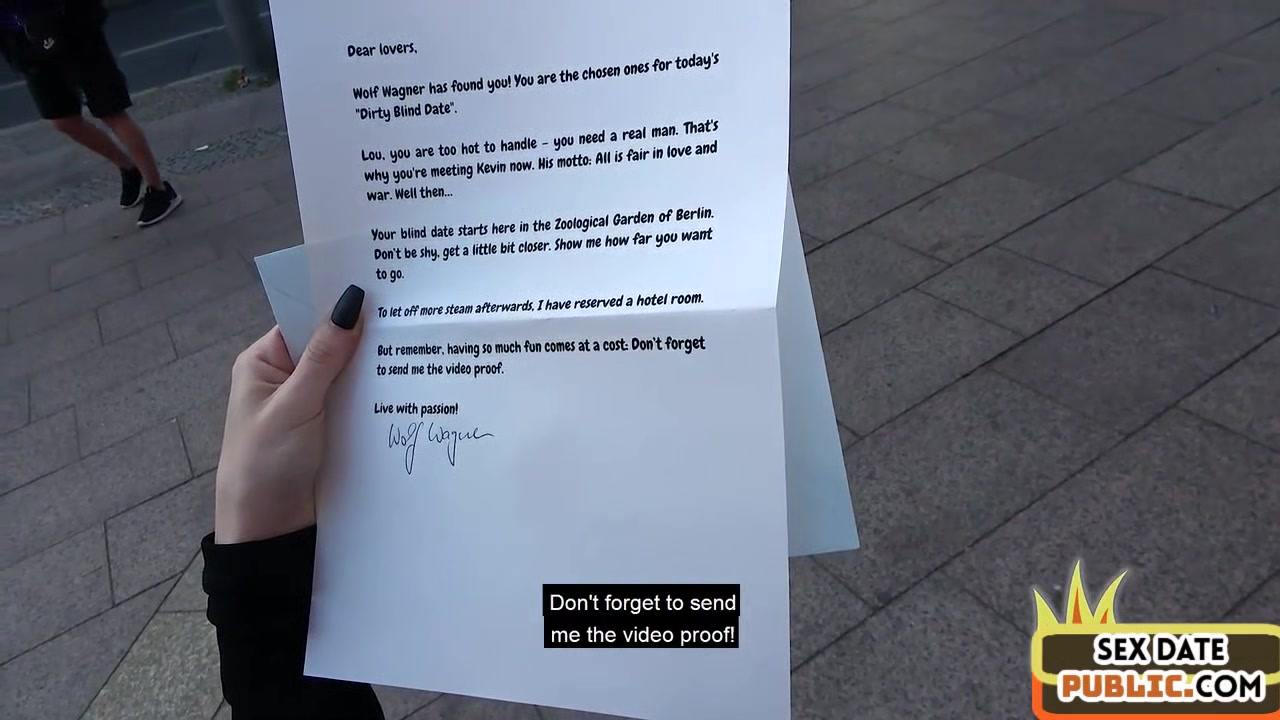 Dear lovers,
Wolf Wagner has found you! You are the chosen ones for today's
"Dirty Blind Date".
Lou, you are too hot to handle – you need a real man. That's
why you're meeting Kevin now. His motto: All is fair in love and
war. Well then...
Your blind date starts here in the Zoological Garden of Berlin.
Don't be shy, get a little bit closer. Show me how far you want
to go.
To let off more steam afterwards, I have reserved a hotel room.
But remember, having so much fun comes at a cost: Don't forget
to send me the video proof.
Live with passion!
Wolf Wagner
Don't forget to send
me the video proof!
SEX DATE
PUBLIC.COM